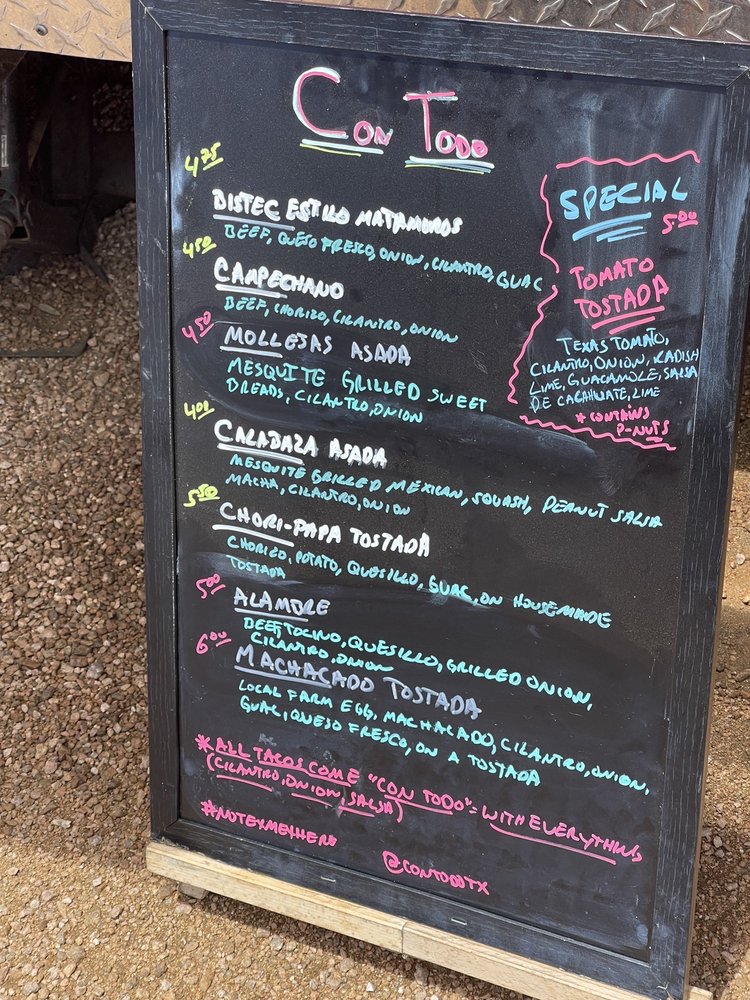 CON TODO
4.75
BISTEC ESTILO MATAMOROS
BEEF, QUESO FRESCO, ONION, CILANTRO, GUAC
4.50
CAMPECHANO
BEEF, CHORIZO, CILANTRO, ONION
4.50
MOLLEJAS ASADA
MESQUITE GRILLED SWEET
BREADS, CILANTRO, ONION
4.00
CALABAZA ASADA
MESQUITE GRILLED MEXICAN, SQUASH, PEANUT SALSA
MACHA, CILANTRO, ONION
5.50
CHORI-PAPA TOSTADA
CHORIZO, POTATO, QUESILLO, GUAC, ON HOUSEMADE
TOSTADA
5.00
ALAMBRE
BEEF, TOCINO, QUESILLO, GRILLED ONION,
CILANTRO, ONION
6.00
MACHACADO TOSTADA
LOCAL FARM EGG, MACHACADO, CILANTRO, ONION,
GUAC, QUESO FRESCO, ON A TOSTADA
*ALL TACOS COME "CON TODO" = WITH EVERYTHING
(CILANTRO, ONION, SALSA)
#NOTEXMEXHERE
@CONTODOTX
SPECIAL
5.00
TOMATO
TOSTADA
TEXAS TOMATO,
CILANTRO, ONION, RADISH
LIME, GUACAMOLE, SALSA
DE CACAHUATE, LIME
*CONTAINS
P-NUTS